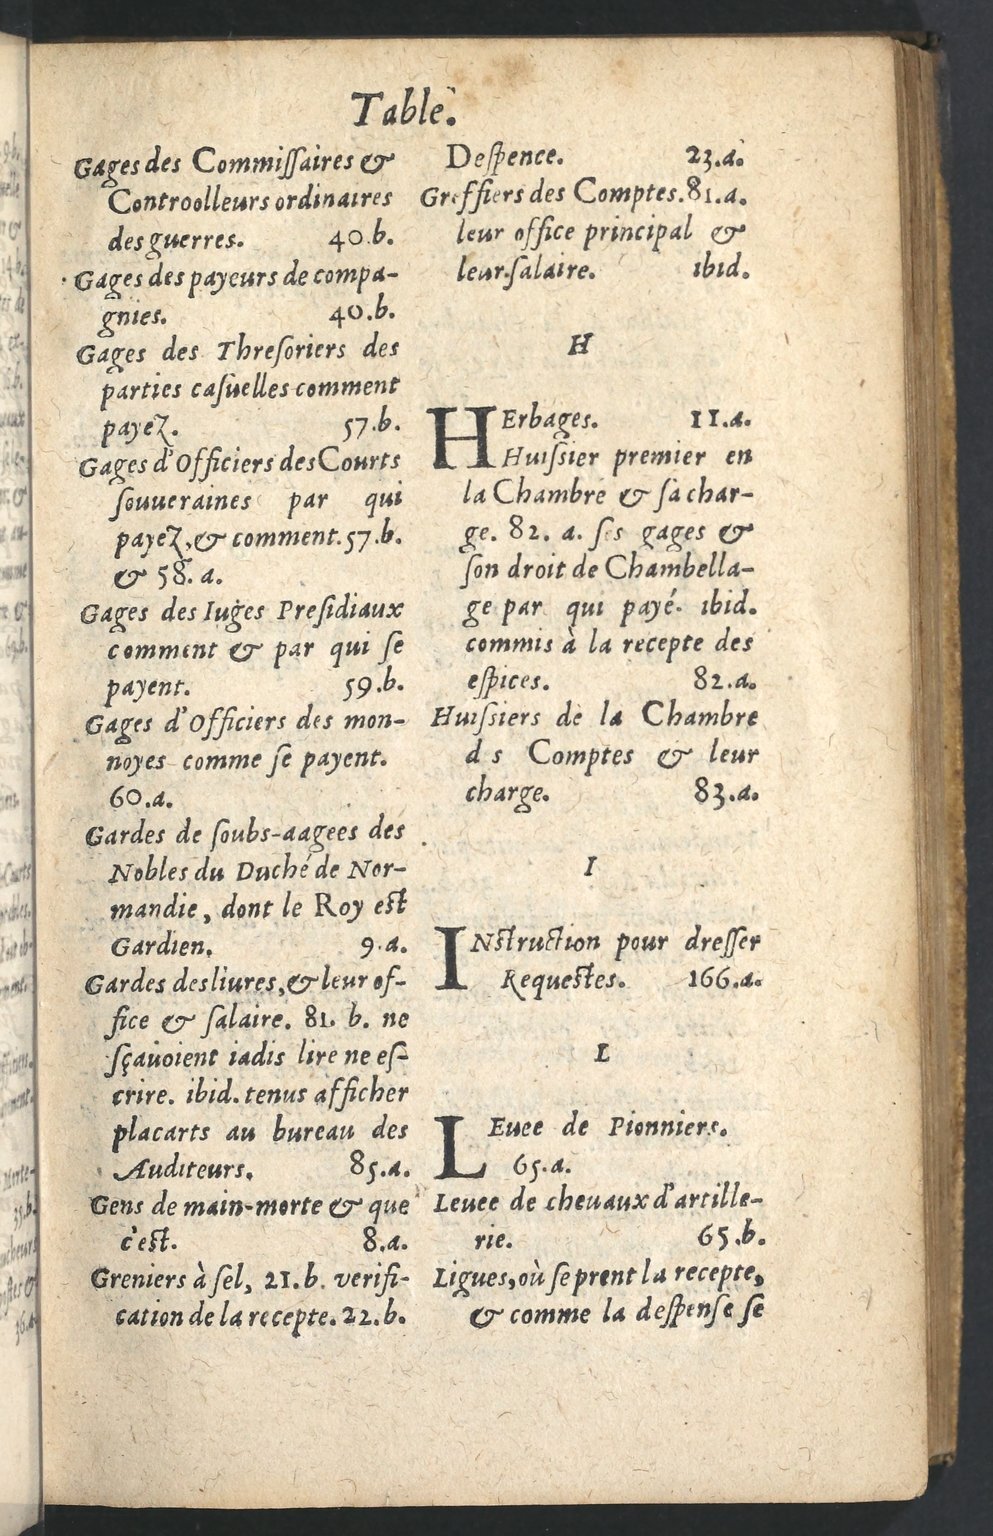 Table.
Gages des Commiſſaires &
Controolleurs ordinaires
des guerres. 40.b.
Gages des payeurs de compa-
gnies. 40.b.
Gages des Threſoriers des
parties caſuelles comment
payez. 57.b.
Gages d'Officiers des Courts
ſouueraines par qui
payez, & comment. 57.b.
& 58. a.
Gages des Iuges Preſidiaux
comment & par qui ſe
payent. 59.b.
Gages d'Officiers des mon-
noyes comme ſe payent.
60.a.
Gardes de ſoubs-aagees des
Nobles du Duché de Nor-
mandie, dont le Roy eſt
Gardien. 9.a.
Gardes des liures, & leur of-
fice & ſalaire. 81. b. ne
ſçauoient iadis lire ne eſ-
crire. ibid. tenus afficher
placarts au bureau des
Auditeurs. 85.a.
Gens de main-morte & que
c'eſt. 8.a.
Greniers à ſel, 21.b. verifi-
cation de la recepte. 22.b.
Deſpence. 23.a.
Greffiers des Comptes. 81.a.
leur office principal &
leur ſalaire. ibid.
H
HErbages. 11.a.
Huiſsier premier en
la Chambre & ſa char-
ge. 82. a. ſes gages &
ſon droit de Chambella-
ge par qui payé. ibid.
commis à la recepte des
eſpices. 82.a.
Huiſsiers de la Chambre
d s Comptes & leur
charge. 83.a.
I
INſtruction pour dreſſer
Requeſtes. 166.a.
L
LEuee de Pionniers.
65.a.
Leuee de cheuaux d'artille-
rie. 65.b.
Ligues, où ſe prent la recepte,
& comme la deſpenſe ſe